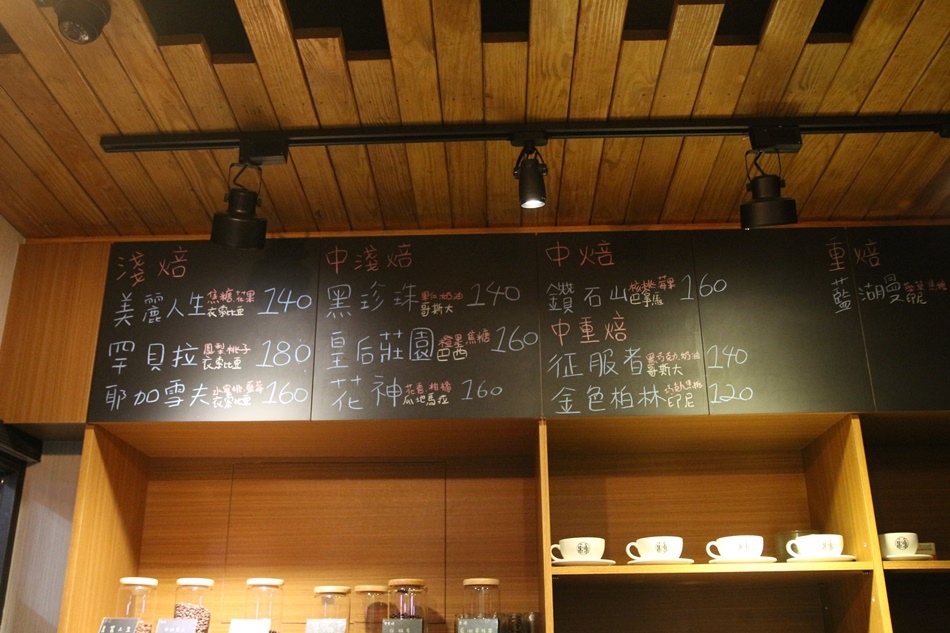 淺焙
美麗人生 焦糖花果 衣索比亞 140
罕貝拉 鳳梨桃子 衣索比亞 180
耶加雪夫 水蜜桃 衣索比亞 160
中淺焙
黑珍珠 奶油 哥斯大 140
皇后莊園 焦糖 巴西 160
花神 花香 柑橘 瓜地馬拉 160
中焙
鑽石山 核桃 莓果 巴拿馬 160
中重焙
征服者 黑巧克力 奶油 哥斯大 140
金色柏林 印尼 120
重焙
藍湖曼 印尼